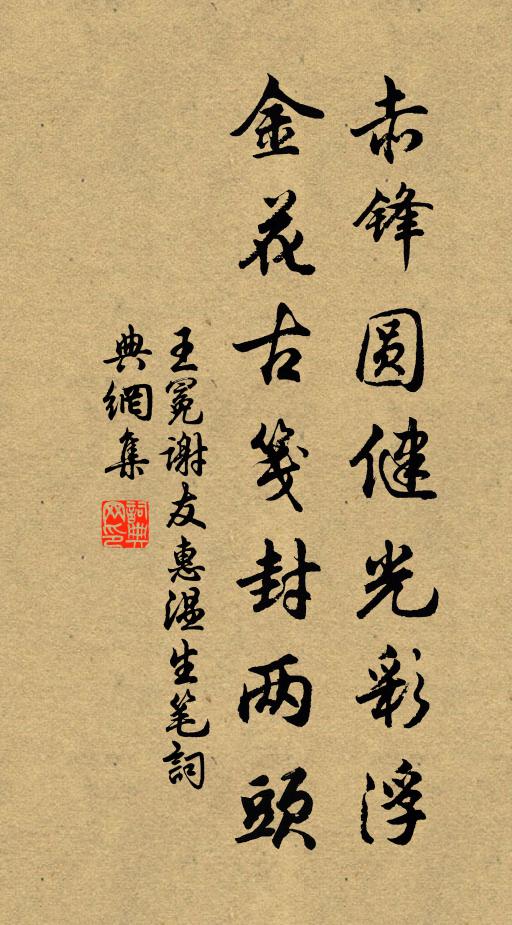 赤锋圆健光彩浮
金花古笺封两頭
王冕谢友惠温生笔詞
典網集
詞典
网印